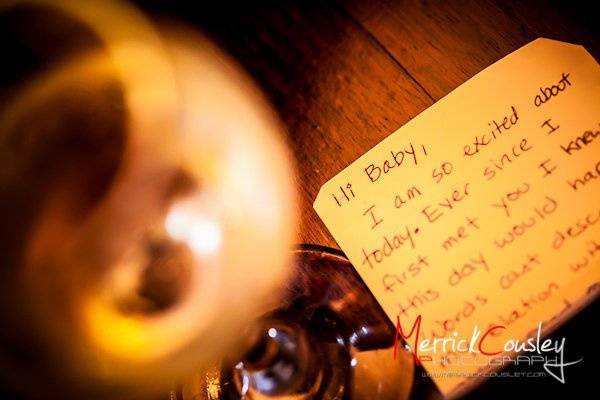 Hi Baby,
I am so excited about
today. Ever since I
first met you I knew
this day would hap
words cant desc
lation with
Merrick Cousley
PHOTOGRAPHY